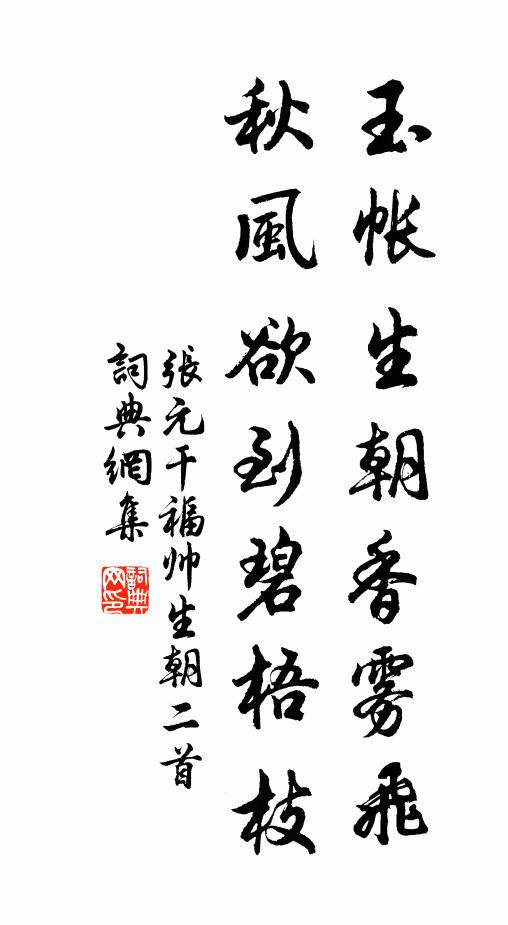 玉帐生朝香雾飛
秋風欲到碧梧枝
張元干福帅生朝二首
詞典網集
詞典網印